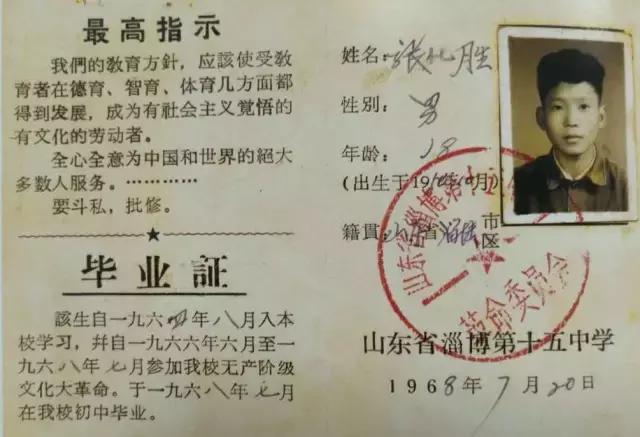 最高指示
我們的教育方針，应該使受教
育者在德育、智育、体育几方面都
得到发展，成为有社会主义覚悟的
有文化的劳动者。
全心全意为中国和世界的絕大
多数人服务。…………
要斗私，批修。
毕业証
該生自一九六四年八月入本
校学习，幷自一九六六年六月至一
九六八年七月参加我校无产阶级
文化大革命。于一九六八年七月
在我校初中毕业。
姓名：张 胜
性別：男
年龄：18
(出生于19 年 月)
籍貫：山东省 市
区
山东省淄博第十五中学
革命委员会
山东省淄博第十五中学
1968年7月20日